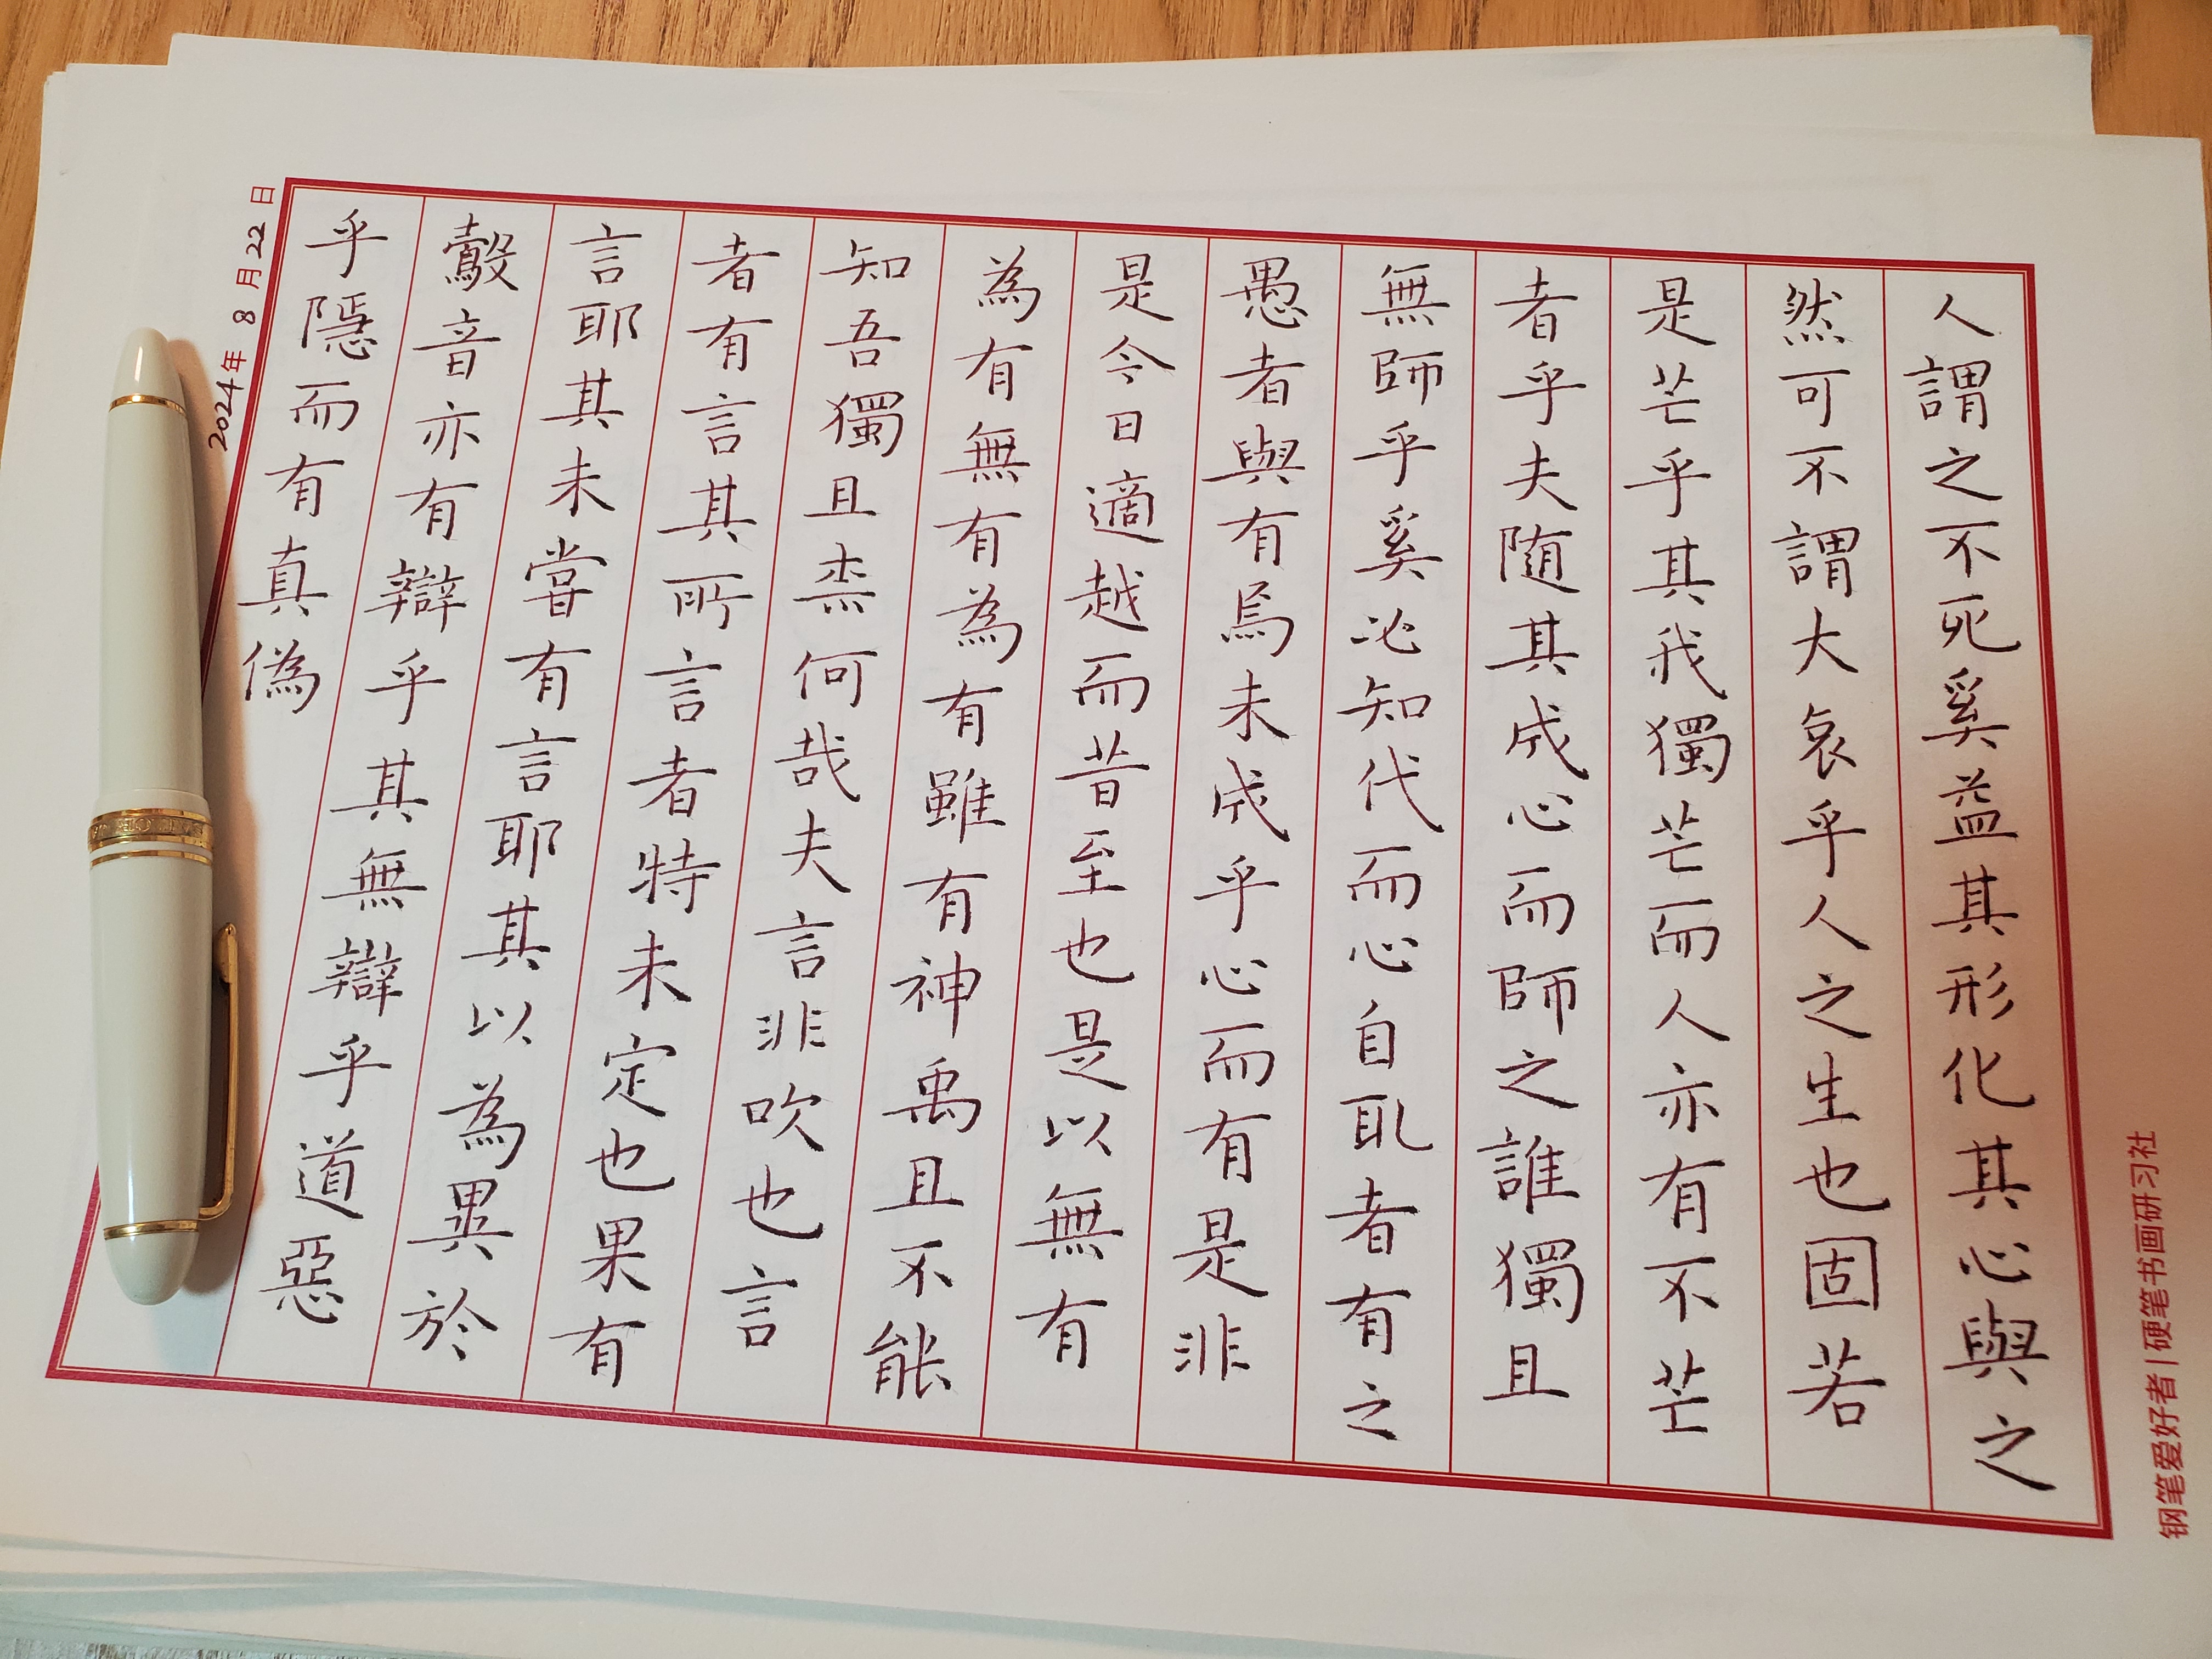 人謂之不死奚益其形化其心與之
然可不謂大哀乎人之生也固若
是芒乎其我獨芒而人亦有不芒
者乎夫随其成心而師之誰獨且
無師乎奚必知代而心自取者有之
愚者與有焉未成乎心而有是非
是今日適越而昔至也是以無有
為有無有為有雖有神禹且不能
知吾獨且柰何哉夫言非吹也言
者有言其所言者特未定也果有
言耶其未嘗有言耶其以為異於
鷇音亦有辯乎其無辯乎道惡
乎隱而有真偽
2024年 8 月 22 日
钢笔爱好者 | 硬笔书画研习社